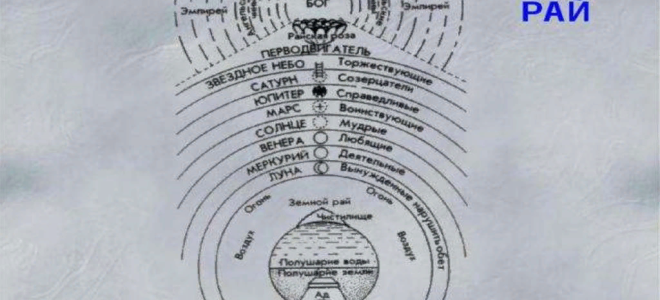 РАЙ
БОГ
Эмпирей
Эмпирей
Райская роза
ПЕРВОДВИГАТЕЛЬ
ЗВЕЗДНОЕ НЕБО Торжествующие
САТУРН Созерцатели
ЮПИТЕР Справедливые
МАРС Воинствующие
СОЛНЦЕ Мудрые
ВЕНЕРА Любящие
МЕРКУРИЙ Деятельные
ЛУНА Вынужденные нарушить обет
Огонь
Огонь
Земной рай
Чистилище
Воздух
Воздух
Полушарие воды
Полушарие земли
Ад